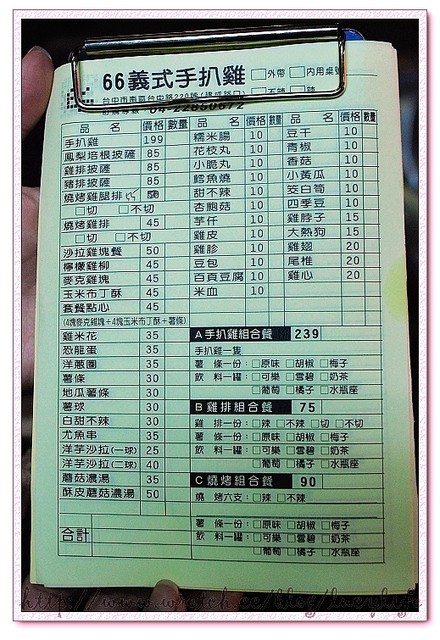 66義式手扒雞 □外帶 □內用桌號
□不辣 □辣
品 名 價格 數量
手扒雞 199
鳳梨培根披薩 85
雞排披薩 85
豬排披薩 85
燒烤雞腿排
□切 □不切
燒烤雞排 45
□切 □不切
沙拉雞塊餐 50
檸檬雞柳 45
麥克雞塊 45
玉米布丁酥 45
套餐點心 45
(4塊麥克雞塊+4塊玉米布丁酥+薯條)
雞米花 35
恐龍蛋 35
洋蔥圈 35
薯條 30
地瓜薯條 30
薯球 30
白甜不辣 30
尤魚串 35
洋芋沙拉(一球) 25
洋芋沙拉(二球) 40
蘑菇濃湯 35
酥皮蘑菇濃湯 50
合計
品 名 價格 數量
糯米腸 10
花枝丸 10
小脆丸 10
鱈魚燒 10
甜不辣 10
杏鮑菇 10
芋仟 10
雞皮 10
雞胗 10
豆包 10
百頁豆腐 10
米血 10
品 名 價格 數量
豆干 10
青椒 10
香菇 10
小黃瓜 10
茭白筍 10
四季豆 10
雞脖子 15
大熱狗 15
雞翅 20
尾椎 20
雞心 20
A手扒雞組合餐 239
手扒雞一隻
薯 條一份：□原味 □胡椒 □梅子
飲 料一罐：□可樂 □雪碧 □奶茶
□葡萄 □橘子 □水瓶座
B 雞排組合餐 75
雞 排一份：□辣 □不辣 □切 □不切
薯 條一份：□原味 □胡椒 □梅子
飲 料一罐：□可樂 □雪碧 □奶茶
□葡萄 □橘子 □水瓶座
C 燒烤組合餐 90
燒 烤六支：□辣 □不辣
薯 條一份：□原味 □胡椒 □梅子
飲 料一罐：□可樂 □雪碧 □奶茶
□葡萄 □橘子 □水瓶座